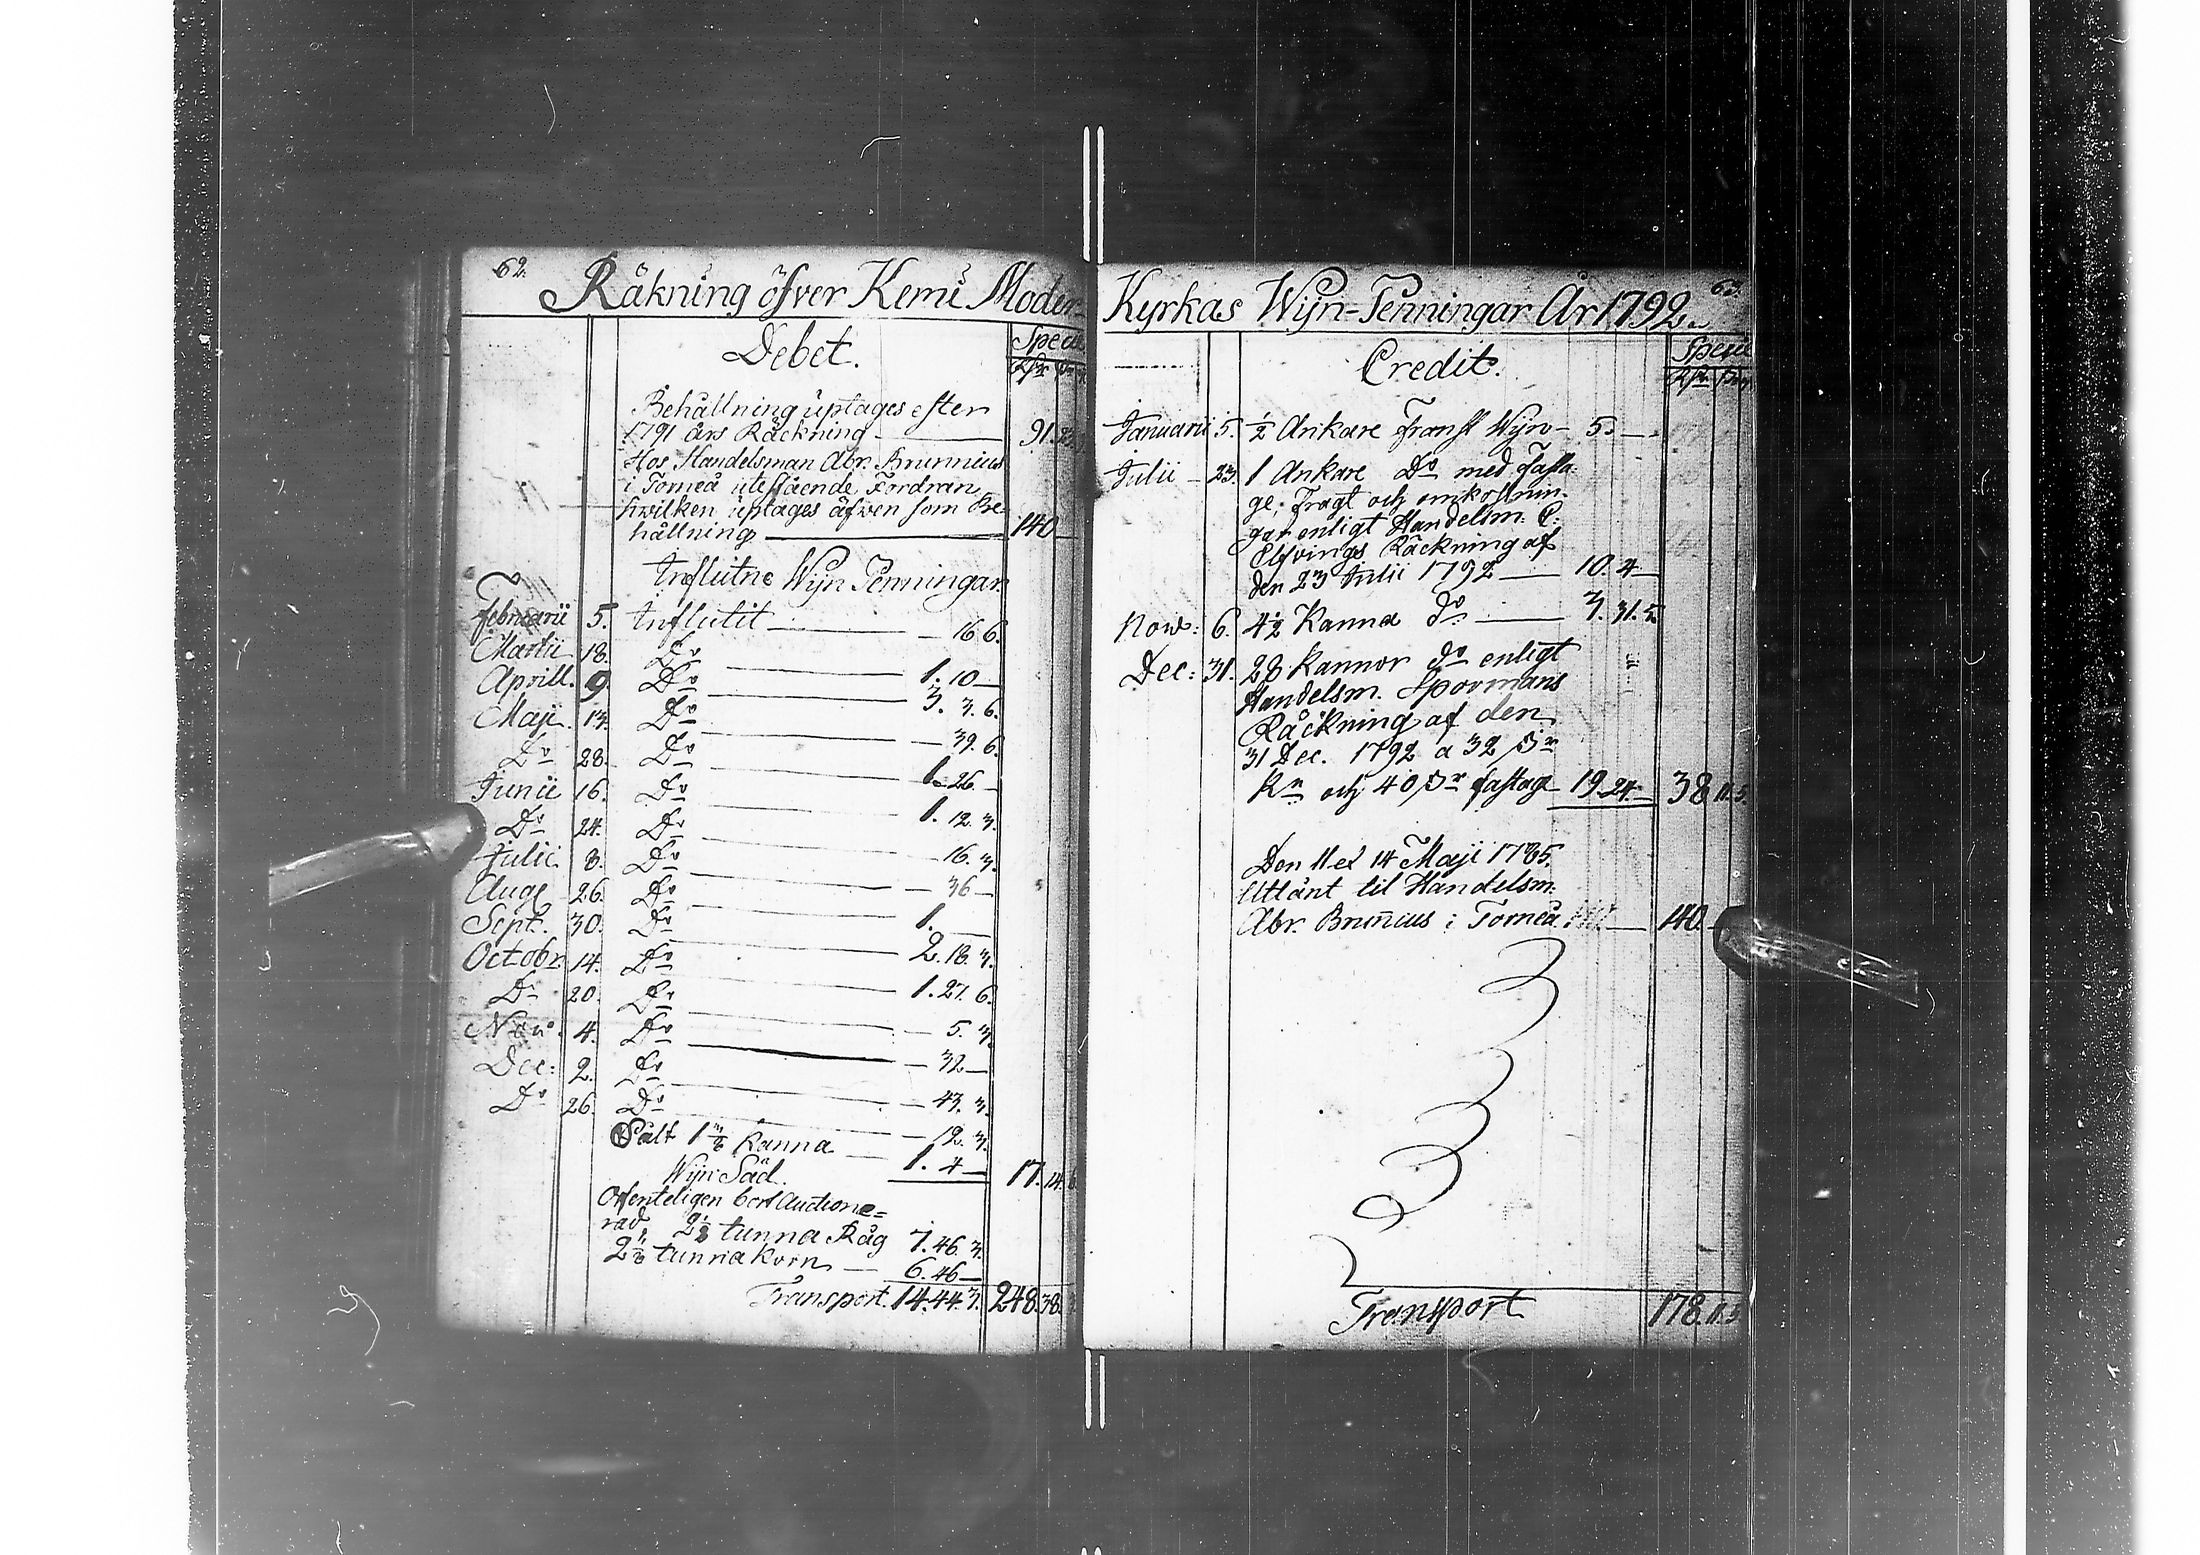 62.
Räkning öfver Kemi Moder-
Debet.
Specie
Rdr
Behållning uptages efter
1791 års Räckning — 91.
Hos Handelsman Abr. Brunnius
i Torneå utestående Fordran
hwilken uptages äfwen som Be-
hållning — 140 —
Influtne Wijn Penningar
Februarii 5. Influtit — 16. 6.
Martii 18. Do — 1. 10 —
Aprill. 9. Do — 3. 3. 6.
Maji 13. Do — 39. 6.
Do 28. Do — 1. 26. —
Junii 16. Do — 1. 12. 3.
Do 24. Do — 16. 3.
Julii 8. Do — 36 —
Aug 26. Do — 1. —
Sept. 30. Do — 2. 18. 3.
Octobr. 14. Do — 1. 27. 6.
Do 20. Do — 5. 3.
Nov. 4. Do — 32 —
Dec: 2. Do — 43. 3.
Do 26. Do — 12. 3.
Sålt 1 3/8 Kanna — 1. 4 — 17. 14. 6
Wijn Säd.
Offenteligen bort Auctione=
rad, 2 1/8 tunna Råg 7. 46. 3.
tunna Korn — 6. 46 —
Transport. 14. 44. 3. 248. 38.
63.
Kyrkas Wijn-Penningar År 1792.
Credit.
Specie
Rdr
Januarii 5. 1/2 Ankare Franst Wijn — 5. —
Julii — 23. 1 Ankare Do med fasta-
ge, Fragt och omkostnin-
gar enligt Handelsm: C:
Elfvings Räckning af
den 23 Julii 1792 — 10. 4 —
Nov: 6. 4 1/2 Kanna Do — 3. 31. 5
Dec: 31. 28 Kannor Do enligt
Handelsm. Spormans
Räckning af den
31 Dec. 1792 a 32
Kn och 40 fastage 19. 24. — 38. 11. 5.
Den 11 et 14 Maji 1785.
Utlånt til Handelsm:
Abr. Brunnius i Torneå — 140. —
Transport 178. 11. 5